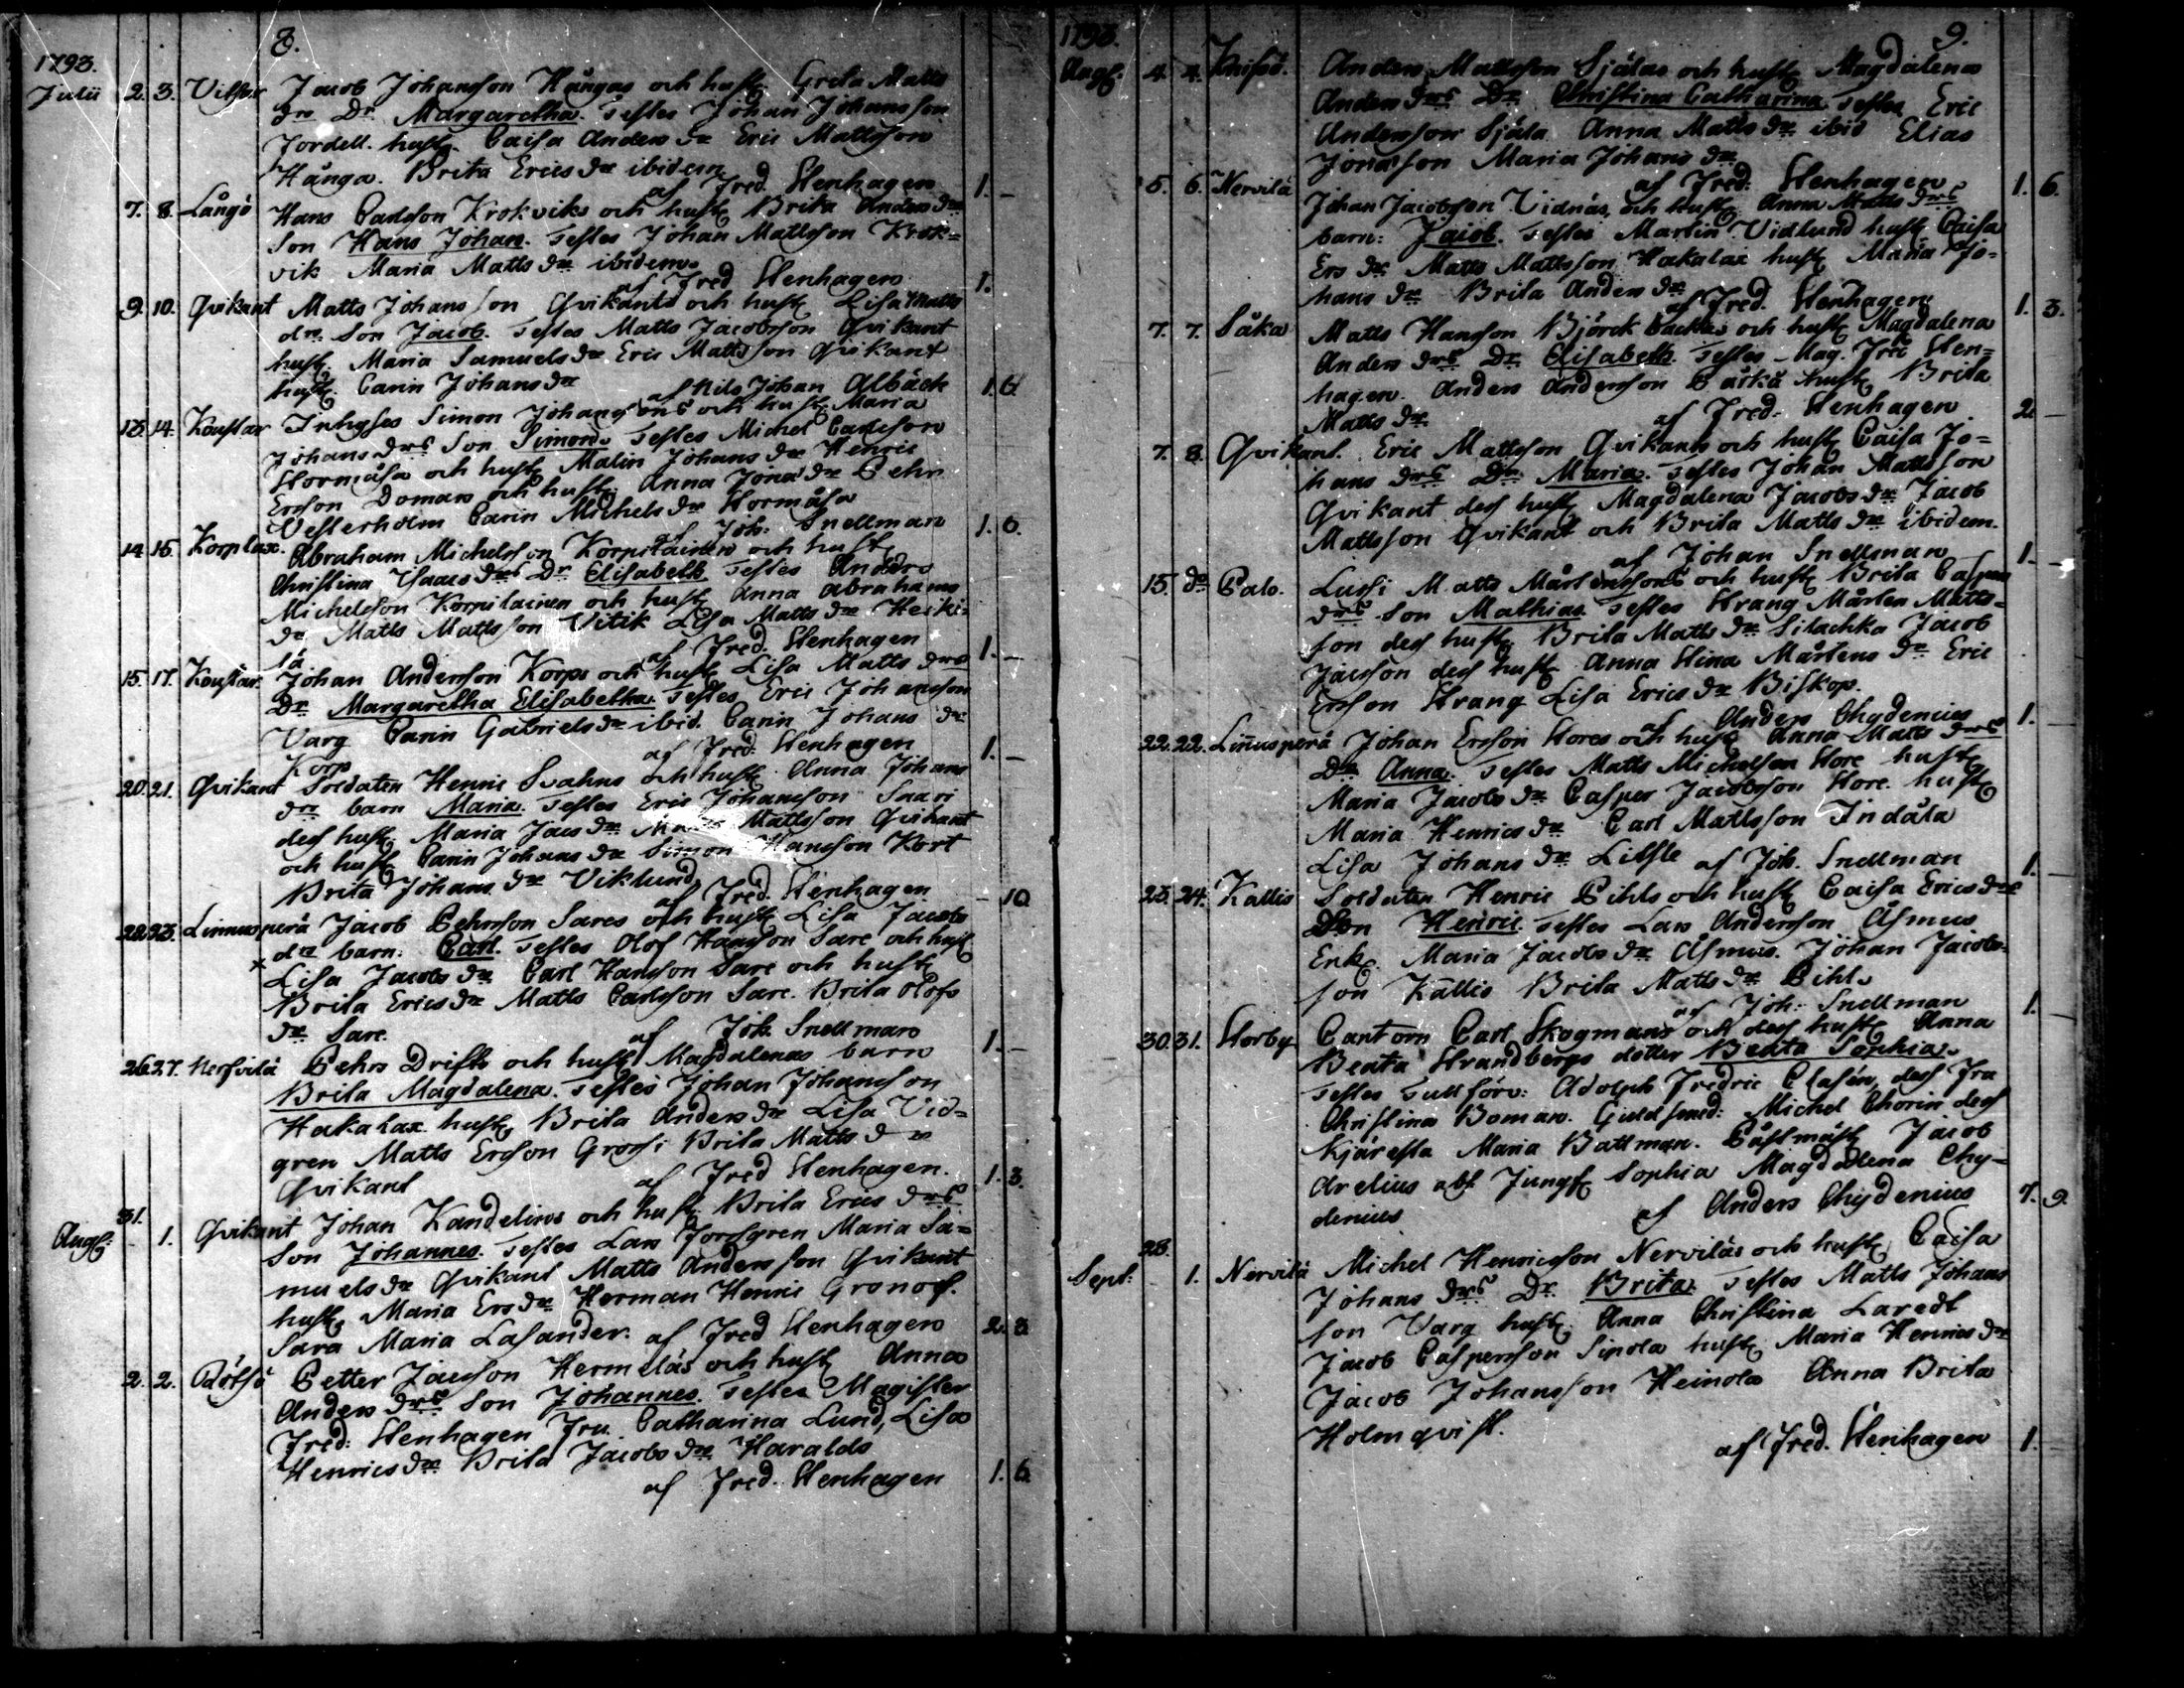 8.
1793.
Julii 2. 3. Vitsar Jacob Johansson Hångas och hust. Greta Matts
dr. Dr. Margaretha. Testes Johan Johansson
Jordell. hust. Caisa Anders dr Eric Mattsson
Hånga. Brita Erics dr ibidem
af Fred. Stenhagen 1. —
7. 8. Långö Hans Carlsson Krokviks och hust. Brita Anders drs
Son Hans Johan. Testes Johan Mattsson Krok=
vik Maria Matts dr ibidem.
af Fred Stenhagen 1.
9. 10. Qvikant Matts Johansson Qvikants och hust. Lisa Matts
drs. Son Jacob. Testes Matts Jacobsson Qvikant
hust. Maria Samuels dr Eric Mattsson Qvikant
hust. Carin Johans dr af Nils Johan Albäck 1. 6.
13. 14. Kaustar Inhyses Simon Johanssons och hust. Maria
Johans drs Son Simon. Testes Michel Carlsson
Stormåsa och hust. Malin Johans dr Henric
Ersson Domars och hust. Anna Jona dr Pehr
Vesterholm Carin Michels dr Stormåsa
af Joh. Snellman 1. 6.
14. 15. Korplax. Abraham Michelsson Korpilainen och hust.
Christina Isaacs drs Dr. Elisabeth Testes Anders
Michelsson Korpilainen och hust. Anna Abrahams
dr Matts Mattsson Vitik Lisa Matts dr Heiki=
lä af Fred. Stenhagen 1. —
15. 17. Kaustar. Johan Andersson Korps och hust. Lisa Matts drs
Dr. Margaretha Elisabetha. Testes Eric Johansson
Varg Carin Gabriels dr ibid. Carin Johans dr
Korp af Fred. Stenhagen 1. —
20. 21. Qvikant Soldaten Henric Svahns och hust. Anna Johans
drs barn Maria. Testes Eric Johansson Saari
des hust. Maria Jacs dr Mattsson Qvikant
och hust. Carin Johans dr Simon Hansson Kort
Brita Johans dr Viklund
af Fred. Stenhagen — 10.
22. 23. Linnusperä Jacob Pehrsson Sares och hust. Lisa Jacobs
drs barn: Carl. Testes Olof Hansson Sare och hust.
× Lisa Jacobs dr Carl Hansson Sare och hust.
Brita Erics dr Matts Carlsson Sare. Brita Olofs
dr Sare. af Joh. Snellman 1. —
26. 27. Nersvilä Pehrs Drifts och hust. Magdalenas barn
Brita Magdalena. Testes Johan Johansson
Hakalax hust. Brita Anders dr Lisa Vid=
gren Matts Ersson Gross: Brita Matts dr
Qvikant af Fred Stenhagen. 1. 3.
31.
Aug: 1. Qvikant Johan Kandelins och hust. Brita Erics drs
Son Johannes. Testes Lars Jordgren Maria Sa=
muels dr Qvikant Matts Andersson Qvikant
hust. Maria Ers dr Herman Henric Gronof.
Sara Maria Lasander. af Fred Stenhagen 2. 3.
2. 2. Rödsö Petter Jacsson Hermelas och hust. Anna
Anders drs Son Johannes. Testes Magister
Fred: Stenhagen Fru. Catharina Lund, Lisa
Henrics dr Brita Jacobs dr Haralds
af Fred. Stenhagen 1. 6.
9.
1793.
Aug: 4. 4. Knifsö. Anders Mattsson Själas och hust. Magdalena
Anders drs Dr Christina Catharina Testes Eric
Andersson Själa Anna Matts dr ibid Elias
Jonasson Maria Johans dr
af Fred: Stenhagen 1. 6.
5. 6. Nervilä Johan Jacobsson Vidnäs, och hust. Anna Matts drs
barn: Jacob. Testes Martin Vidlund hust. Caisa
Ers dr Matts Mattsson Hakalax hust. Maria Jo=
hans dr Brita Anders dr
af Fred. Stenhagen 1. 3.
7. 7. Såka Matts Hansson Björckbackas och hust. Magdalena
Anders drs Dr Elisabeth Testes Mag. Fric Sten=
hagen. Anders Andersson hust. Brita
Matts dr af Fred. Stenhagen 2. —
7. 8. Qvikant. Eric Mattsson Qvikants och hust. Caisa Jo=
hans drs Dr. Maria. Testes Johan Mattsson
Qvikant des hust. Magdalena Jacobs dr Jacob
Mattsson Qvikant och Brita Matts dr ibidem.
af Johan Snellman 1. —
15. do Palo. Lussi Matts Mårtenssons och hust. Brita Caspers
drs Son Mathias. Testes Strang Mårten Matts=
son des hust. Brita Matts dr Silachka Jacob
Jacsson des hust. Anna Stina Mårtens dr Eric
Ersson Strang Lisa Erics dr Biskop.
af Anders Chydenius 1. —
22. 22. Linusperä Johan Ersson Stores och hust. Anna Matts drs
Dr Anna. Testes Matts Michelsson Store hust.
Maria Jacobs dr Casper Jacobsson Store. hust.
Maria Henrics dr Carl Mattsson Indåla
Lisa Johans dr Lillle af Joh. Snellman 1. —
23. 24. Kallis Soldaten Henric Pihls och hust. Caisa Erics drs
Son Henric. Testes Lars Andersson Åsmus
Enk. Maria Jacobs dr Åsmus. Johan Jacobs=
son Kallis Brita Matts dr Pihl.
af Joh: Snellman 1. —
30. 31. Storby Cantorn Carl Skogmans och des hust. Anna
Beata Strandbergs dotter Beata Sophia.
Testes Tullförv: Adolph Fredric Clasén, des Fru
Christina Boman. Guldsmed: Michel Chorin des
Kjäresta Maria Battman. Påstmäst. Jacob
Arelius abf Jungf. Sophia Magdalena Chy=
denius af Anders Chydenius 7. 9.
28.
Sept: 1. Nervilä Michel Henricsson Nerviläs och hust. Caisa
Johans drs Dr. Brita. Testes Matts Johans
son Varg hust. Anna Christina Laredt
Jacob Caspersson Sipola hust. Maria Henrics dr
Jacob Johansson Heinola Anna Brita
Holmqvist.
af Fred. Stenhagen 1. —